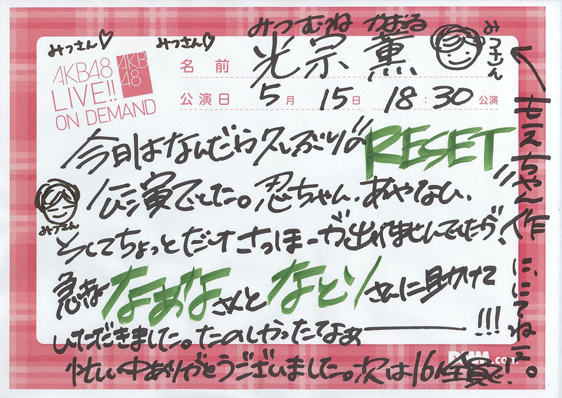 みつむね かおる
みっさん♡
みっさん♡
みっさん
AKB48
LIVE!!
ON DEMAND
AKB
48
名前 光宗 薫
公演日 5月 15日 18:30公演
今日はなんだら久しぶりの RESET
公演でした。忍ちゃん、あやなん、
そしてちょっとだけさっほーが出れませんでしたが!
みっさん
急きょ なぁなさんと なとりさんに助けて
いただきました。たのしかったなぁー!!!
忙しい中ありがとうございました。次は16人全員で!
.com
←もえちゃん作